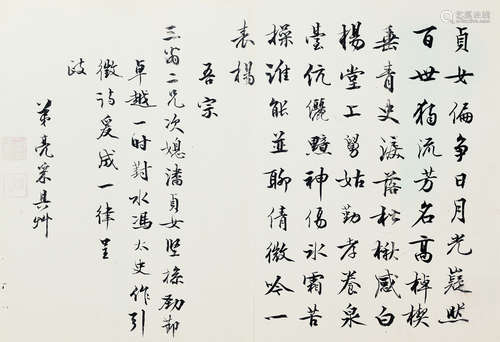 貞女偏争日月光嶷然
百世猶流芳名高棹楔
垂青史淚落松楸感白
楊堂上舅姑勤孝養泉
臺伉儷黯神傷冰霜苦
操誰能並聊倩微吟一
表楊
吾宗
三 二兄次媳潘貞女堅操勁節
卓越一时對水馮太史作引
徵詩爰成一律呈
政
弟亮采具艸
易拍全球